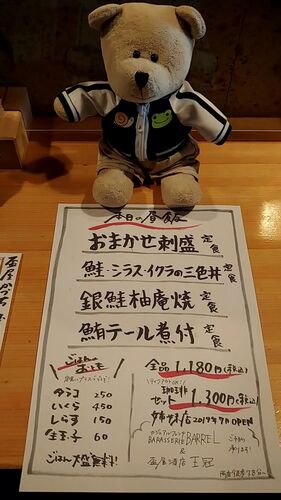 本日の昼飯
おまかせ刺盛定食
鮭・シラス・イクラの三色丼定食
銀鮭柚庵焼定食
鮪テール煮付定食
ごはんのおとも
タラコ 250
いくら 450
しらす 150
生玉子 60
ごはん大盛無料!
全品1,180円(税込)
珈琲セット 1,300円(税込)
姉妹店2019年7月OPEN
BARASSERIE BARREL
&
王冠